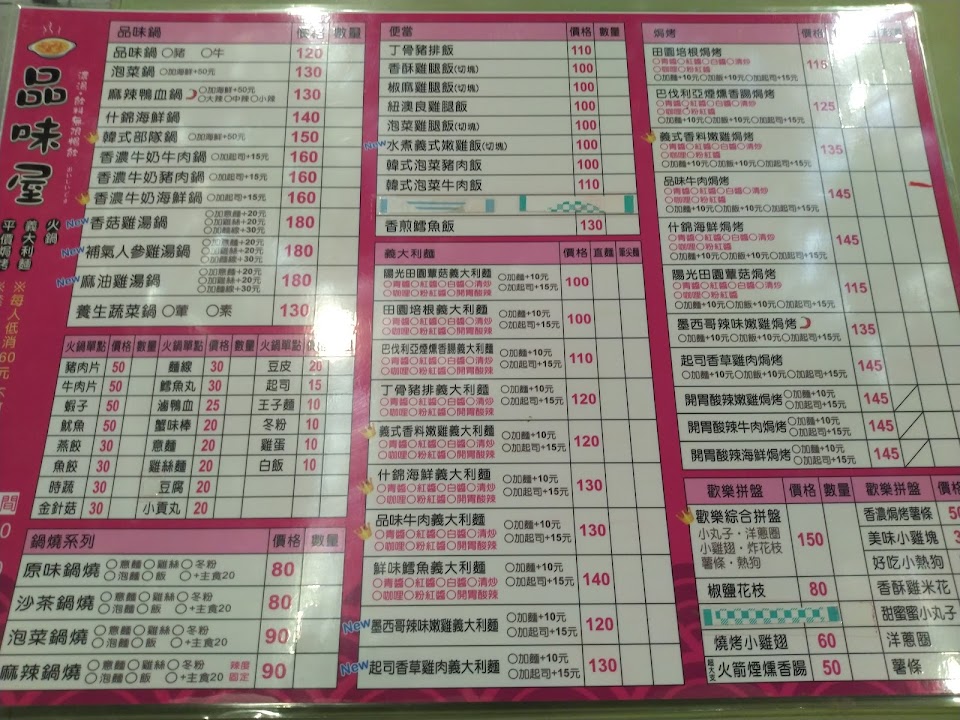 品味屋
火鍋
義大利麵
平價焗烤
※每人低消60元
品味鍋 價格 數量
品味鍋 ○豬 ○牛 120
泡菜鍋 ○加海鮮+50元 130
麻辣鴨血鍋 ○加海鮮+50元 ○大辣○中辣○小辣 130
什錦海鮮鍋 140
韓式部隊鍋 ○加海鮮+50元 150
香濃牛奶牛肉鍋 ○加起司+15元 160
香濃牛奶豬肉鍋 ○加起司+15元 160
香濃牛奶海鮮鍋 ○加起司+15元 160
New 香菇雞湯鍋 ○加意麵+20元 ○加雞絲+20元 ○加麵線+30元 180
New 補氣人參雞湯鍋 ○加意麵+20元 ○加雞絲+20元 ○加麵線+30元 180
New 麻油雞湯鍋 ○加意麵+20元 ○加雞絲+20元 ○加麵線+30元 180
養生蔬菜鍋 ○葷 ○素 130
火鍋單點 價格 數量 火鍋單點 價格 數量 火鍋單點
豬肉片 50 麵線 30 豆皮 20
牛肉片 50 鱈魚丸 30 起司 15
蝦子 50 滷鴨血 25 王子麵 10
魷魚 50 蟹味棒 20 冬粉 10
燕餃 30 意麵 20 雞蛋 10
魚餃 30 雞絲麵 20 白飯 10
時蔬 30 豆腐 20
金針菇 30 小貢丸 20
鍋燒系列 價格 數量
原味鍋燒 ○意麵○雞絲○冬粉 ○泡麵○飯 ○+主食20 80
沙茶鍋燒 ○意麵○雞絲○冬粉 ○泡麵○飯 ○+主食20 80
泡菜鍋燒 ○意麵○雞絲○冬粉 ○泡麵○飯 ○+主食20 90
麻辣鍋燒 ○意麵○雞絲○冬粉 ○泡麵○飯 ○+主食20 辣度固定 90
便當 價格 數量
丁骨豬排飯 110
香酥雞腿飯(切塊) 100
椒麻雞腿飯(切塊) 100
紐澳良雞腿飯 100
泡菜雞腿飯(切塊) 100
New 水煮義式嫩雞飯(切塊) 100
韓式泡菜豬肉飯 100
韓式泡菜牛肉飯 110
香煎鱈魚飯 130
義大利麵 價格 直麵 筆尖麵
陽光田園蕈菇義大利麵 ○加麵+10元
○青醬○紅醬○白醬○清炒 ○加起司+15元 100
○咖哩○粉紅醬○開胃酸辣
田園培根義大利麵 ○加麵+10元
○青醬○紅醬○白醬○清炒 ○加起司+15元 100
○咖哩○粉紅醬○開胃酸辣
巴伐利亞煙燻香腸義大利麵 ○加麵+10元
○青醬○紅醬○白醬○清炒 ○加起司+15元 110
○咖哩○粉紅醬○開胃酸辣
丁骨豬排義大利麵 ○加麵+10元
○青醬○紅醬○白醬○清炒 ○加起司+15元 120
○咖哩○粉紅醬○開胃酸辣
義式香料嫩雞義大利麵 ○加麵+10元
○青醬○紅醬○白醬○清炒 ○加起司+15元 120
○咖哩○粉紅醬○開胃酸辣
什錦海鮮義大利麵 ○加麵+10元
○青醬○紅醬○白醬○清炒 ○加起司+15元 130
○咖哩○粉紅醬○開胃酸辣
品味牛肉義大利麵 ○加麵+10元
○青醬○紅醬○白醬○清炒 ○加起司+15元 130
○咖哩○粉紅醬○開胃酸辣
鮮味鱈魚義大利麵 ○加麵+10元
○青醬○紅醬○白醬○清炒 ○加起司+15元 140
○咖哩○粉紅醬○開胃酸辣
New 墨西哥辣味嫩雞義大利麵 ○加麵+10元 ○加起司+15元 120
New 起司香草雞肉義大利麵 ○加麵+10元 ○加起司+15元 130
焗烤 價格
田園培根焗烤 115
○青醬○紅醬○白醬○清炒
○咖哩○粉紅醬
○加麵+10元○加飯+10元○加起司+15元
巴伐利亞煙燻香腸焗烤 125
○青醬○紅醬○白醬○清炒
○咖哩○粉紅醬
○加麵+10元○加飯+10元○加起司+15元
義式香料嫩雞焗烤 135
○青醬○紅醬○白醬○清炒
○咖哩○粉紅醬
○加麵+10元○加飯+10元○加起司+15元
品味牛肉焗烤 145
○青醬○紅醬○白醬○清炒
○咖哩○粉紅醬
○加麵+10元○加飯+10元○加起司+15元
什錦海鮮焗烤 145
○青醬○紅醬○白醬○清炒
○咖哩○粉紅醬
○加麵+10元○加飯+10元○加起司+15元
陽光田園蕈菇焗烤 115
○青醬○紅醬○白醬○清炒
○咖哩○粉紅醬
○加麵+10元○加飯+10元○加起司+15元
墨西哥辣味嫩雞焗烤 135
○加麵+10元○加飯+10元○加起司+15元
起司香草雞肉焗烤 145
○加麵+10元○加飯+10元○加起司+15元
開胃酸辣嫩雞焗烤 ○加麵+10元 ○加起司+15元 145
開胃酸辣牛肉焗烤 ○加麵+10元 ○加起司+15元 145
開胃酸辣海鮮焗烤 ○加麵+10元 ○加起司+15元 145
歡樂拼盤 價格 數量 歡樂拼盤 價格
歡樂綜合拼盤 150
小丸子・洋蔥圈
小雞翅・炸花枝
薯條・熱狗
椒鹽花枝 80
燒烤小雞翅 60
超大支 火箭煙燻香腸 50
香濃焗烤薯條 50
美味小雞塊
好吃小熱狗
香酥雞米花
甜蜜蜜小丸子
洋蔥圈
薯條